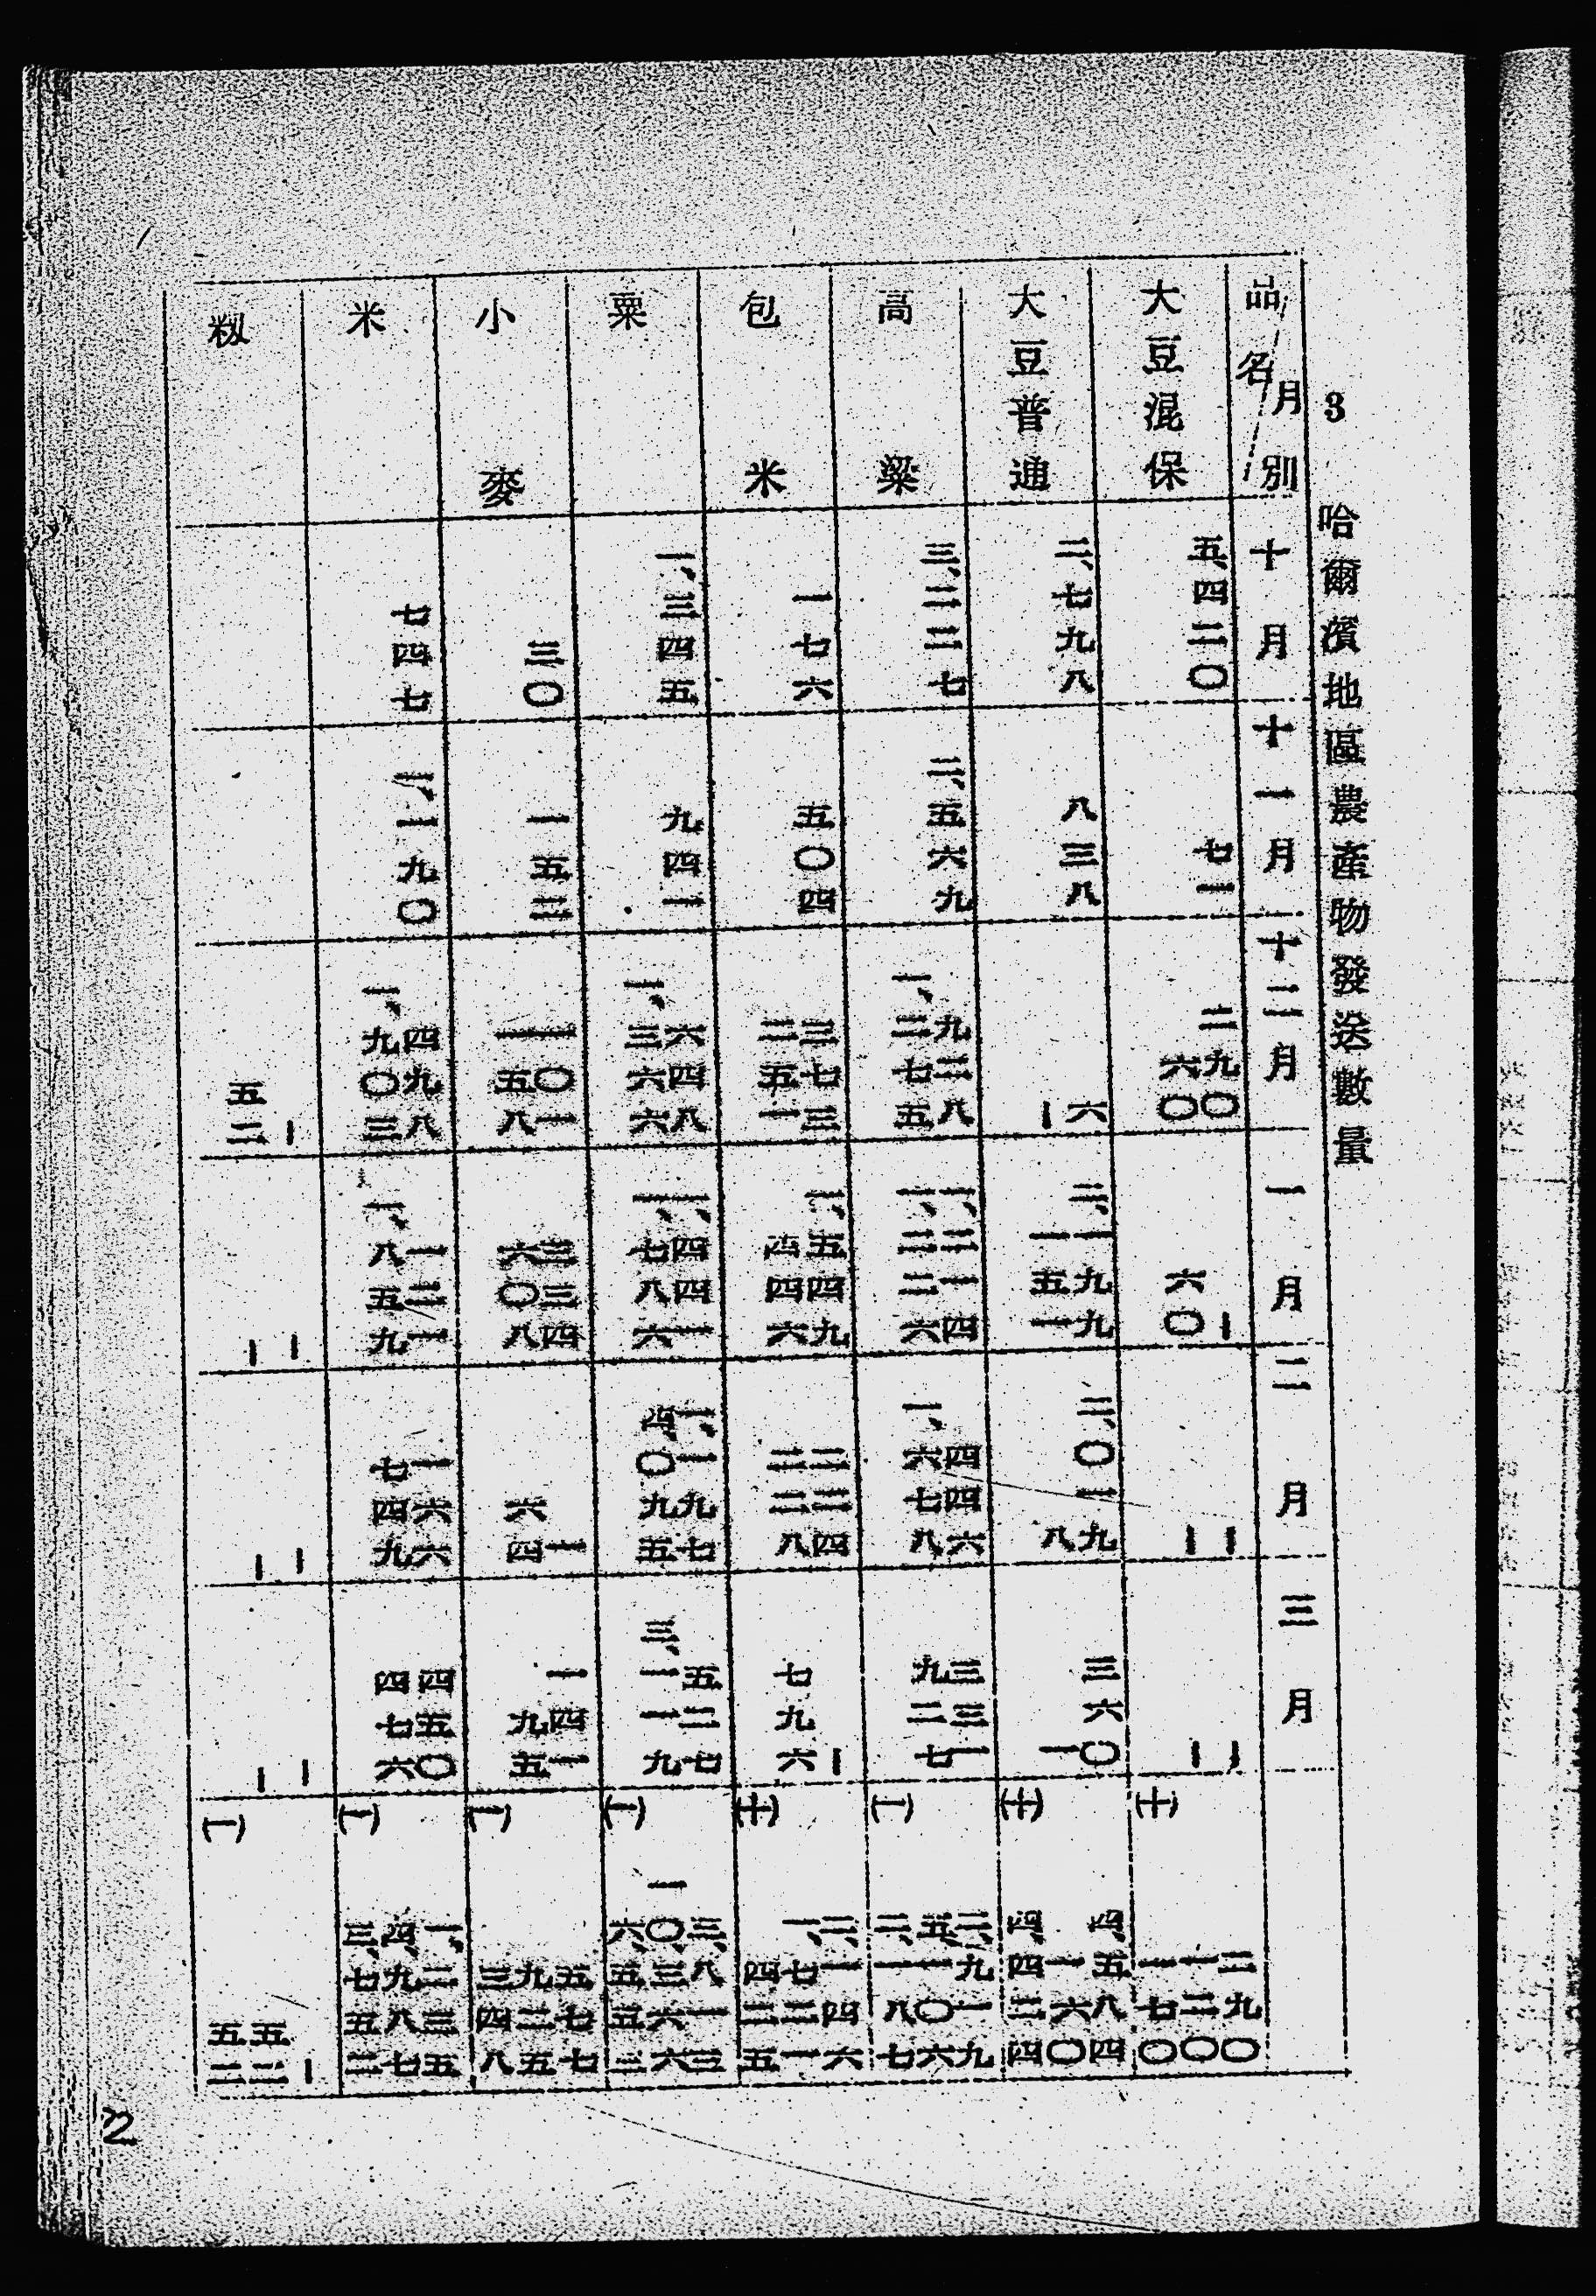 3 哈爾濱地區農產物發送數量
品名 月別 十月 十一月 十二月 一月 二月 三月
大豆混保 五、四二〇 七一 二九〇 六〇 | 六〇 | | | | 二九〇 一二〇 (十)一七〇
大豆普通 二、七九八 八三八 六 | 二、一九九 一五一 二、〇一九 八 三六〇 一 四、五八四 一六〇 (十)四、四二四
高粱 三、二二七 二、五六九 九二八 一、二七五 一、二一四 一、二二六 四四六 一、六七八 三三一 九二七 二、九一九 五、一〇六 (一)二、一八七
包米 一七六 五〇四 三七三 二五一 一、五四九 四四六 二二四 二二八 | 七九六 二、一四六 一、七二一 (十)四二五
粟 一、三四五 九四一 六四八 一、三六六 一、四四一 一、七八六 一、一九七 四、〇九五 五二七 三、一一九 三、八一三 一〇、三六六 (一)六、五五三
小麥 三〇 一五三 一〇一 一五八 三三四 六〇八 一 六四 一四一 九五 五七七 九二五 (一)三四八
米 七四七 二、一九〇 四九八 一、九〇三 一二一 一、八五九 一六六 七四九 四五〇 四七六 一、二三五 四、九八七 (一)三、七五二
籾 | 五二 | | | | | | | 五二 (一)五二
2